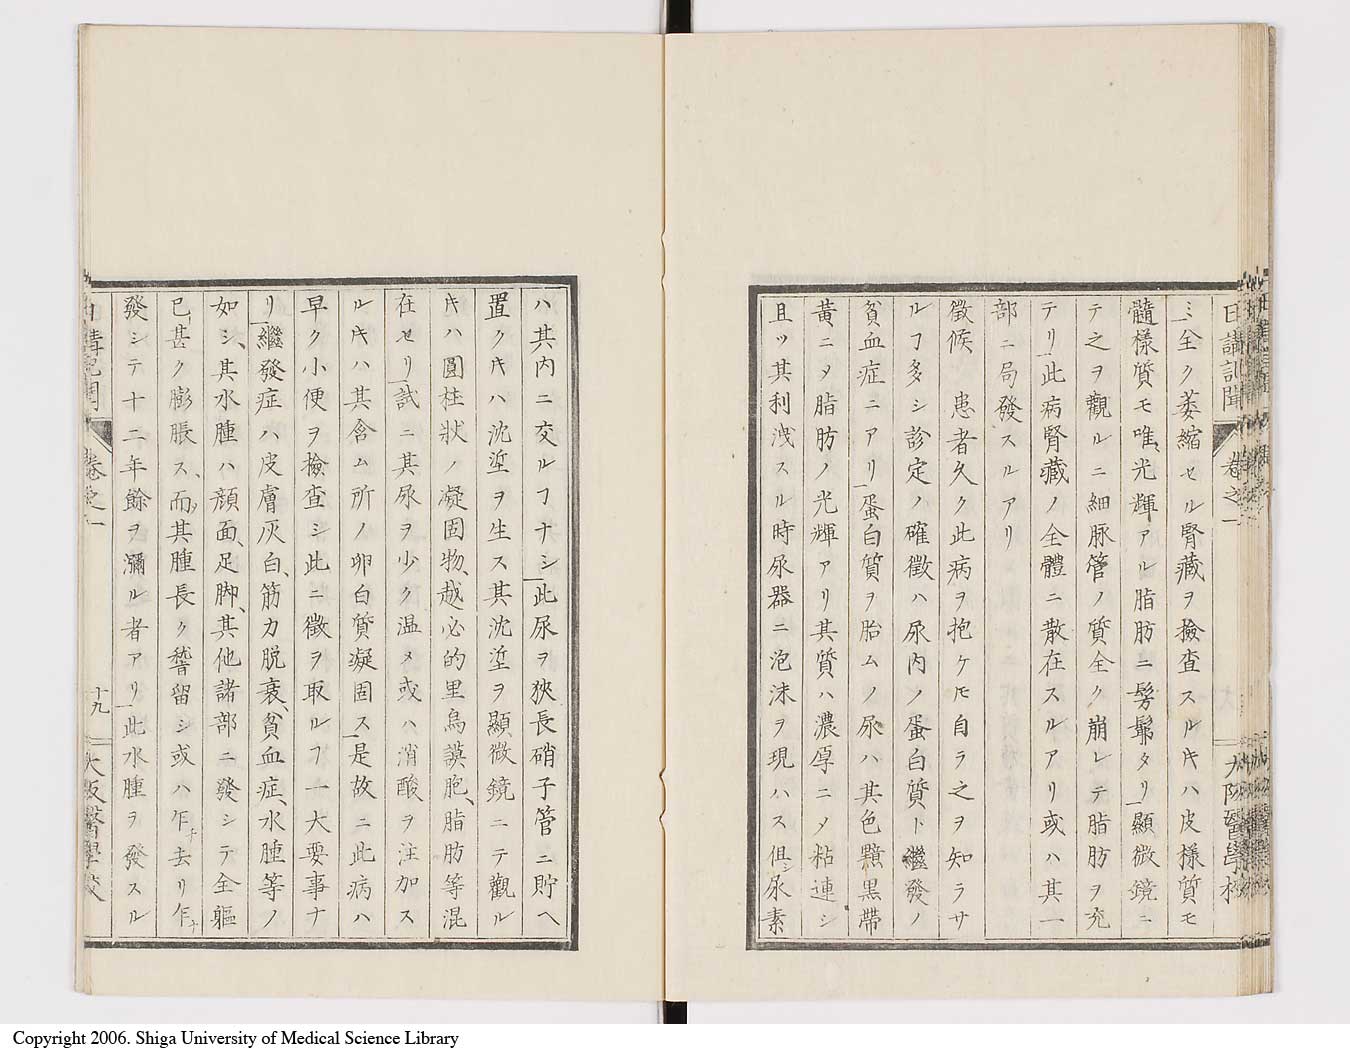 日講記聞 卷之一 大阪醫學校
ミ全ク萎縮セル腎藏ヲ撿査スルキハ皮様質モ
髓様質モ唯光輝アル脂肪ニ髣髴タリ顯微鏡ニ
テ之ヲ觀ルニ細脉管ノ質全ク崩レテ脂肪ヲ充
テリ此病腎藏ノ全體ニ散在スルアリ或ハ其一
部ニ局發スルアリ
徵候 患者久ク此病ヲ抱ケ𪜈自ラ之ヲ知ラサ
ルヿ多シ診定ノ確徵ハ尿内ノ蛋白質ト繼發ノ
貧血症ニアリ蛋白質ヲ胎ムノ尿ハ其色黑帶
黃ニ〆脂肪ノ光輝アリ其質ハ濃厚ニ〆粘連シ
且ツ其利洩スル時尿器ニ泡沫ヲ現ハス俱シ尿素
ハ其内ニ交ルヿナシ此尿ヲ狹長硝子管ニ貯ヘ
置クキハ沈垽ヲ生ス其沈垽ヲ顯微鏡ニテ觀ル
キハ圓柱狀ノ凝固物、越必的里烏謨胞、脂肪等混
在セリ試ニ其尿ヲ少ク温メ或ハ消酸ヲ注加ス
ルキハ其含ム所ノ卵白質凝固ス是故ニ此病ハ
早ク小便ヲ撿査シ此ニ徵ヲ取ルヿ一大要事ナ
リ繼發症ハ皮膚灰白、筋力脫衰、貧血症、水腫等ノ
如シ、其水腫ハ顔面、足脚、其他諸部ニ發シテ全軀
已甚ク膨脹ス、而其腫長ク瞀留シ或ハ乍チ去リ乍チ
發シテ十二年餘ヲ瀰ル者アリ此水腫ヲ發スル
日講記聞 卷之一 十九 大阪醫學校
Copyright 2006. Shiga University of Medical Science Library